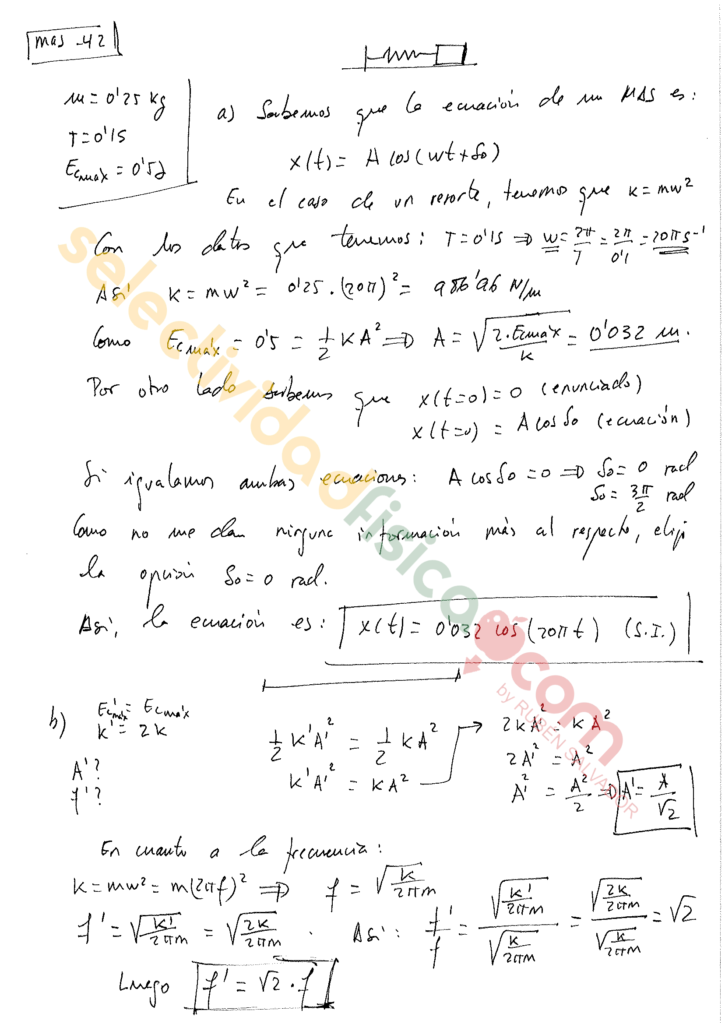 mas -42
m = 0'25 kg
T = 0'1s
Ecmáx = 0'5J
a) Sabemos que la ecuación de un MAS es:
x(t) = A cos(wt+δo)
En el caso de un resorte, tenemos que k = mw²
Con los datos que tenemos: T = 0'1s ⇒ w = 2π/T = 2π/0'1 = 20π s⁻¹
Así k = mw² = 0'25 · (20π)² = 986'96 N/m
Como Ecmáx = 0'5 = 1/2 kA² ⇒ A = √(2·Ecmáx/k) = 0'032 m.
Por otro lado sabemos que x(t=0) = 0 (enunciado)
x(t=0) = A cos δo (ecuación)
Si igualamos ambas ecuaciones: A cos δo = 0 ⇒ δo = 0 rad
δo = 3π/2 rad
Como no me dan ninguna información más al respecto, elijo
la opción δo = 0 rad.
Así, la ecuación es: x(t) = 0'032 cos (20π t) (S.I.)
b) Ec'máx = Ecmáx
k' = 2k
A'?
f'?
1/2 k'A'² = 1/2 kA²
k'A'² = kA²
2kA'² = kA²
2A'² = A²
A'² = A²/2 ⇒ A' = A/√2
En cuanto a la frecuencia:
k = mw² = m(2πf)² ⇒ f = √(k/2πm)
f' = √(k'/2πm) = √(2k/2πm). Así: f'/f = √(k'/2πm)/√(k/2πm) = √(2k/2πm)/√(k/2πm) = √2
Luego f' = √2 · f
selectividadfisica.com
by RUBEN SALVADOR